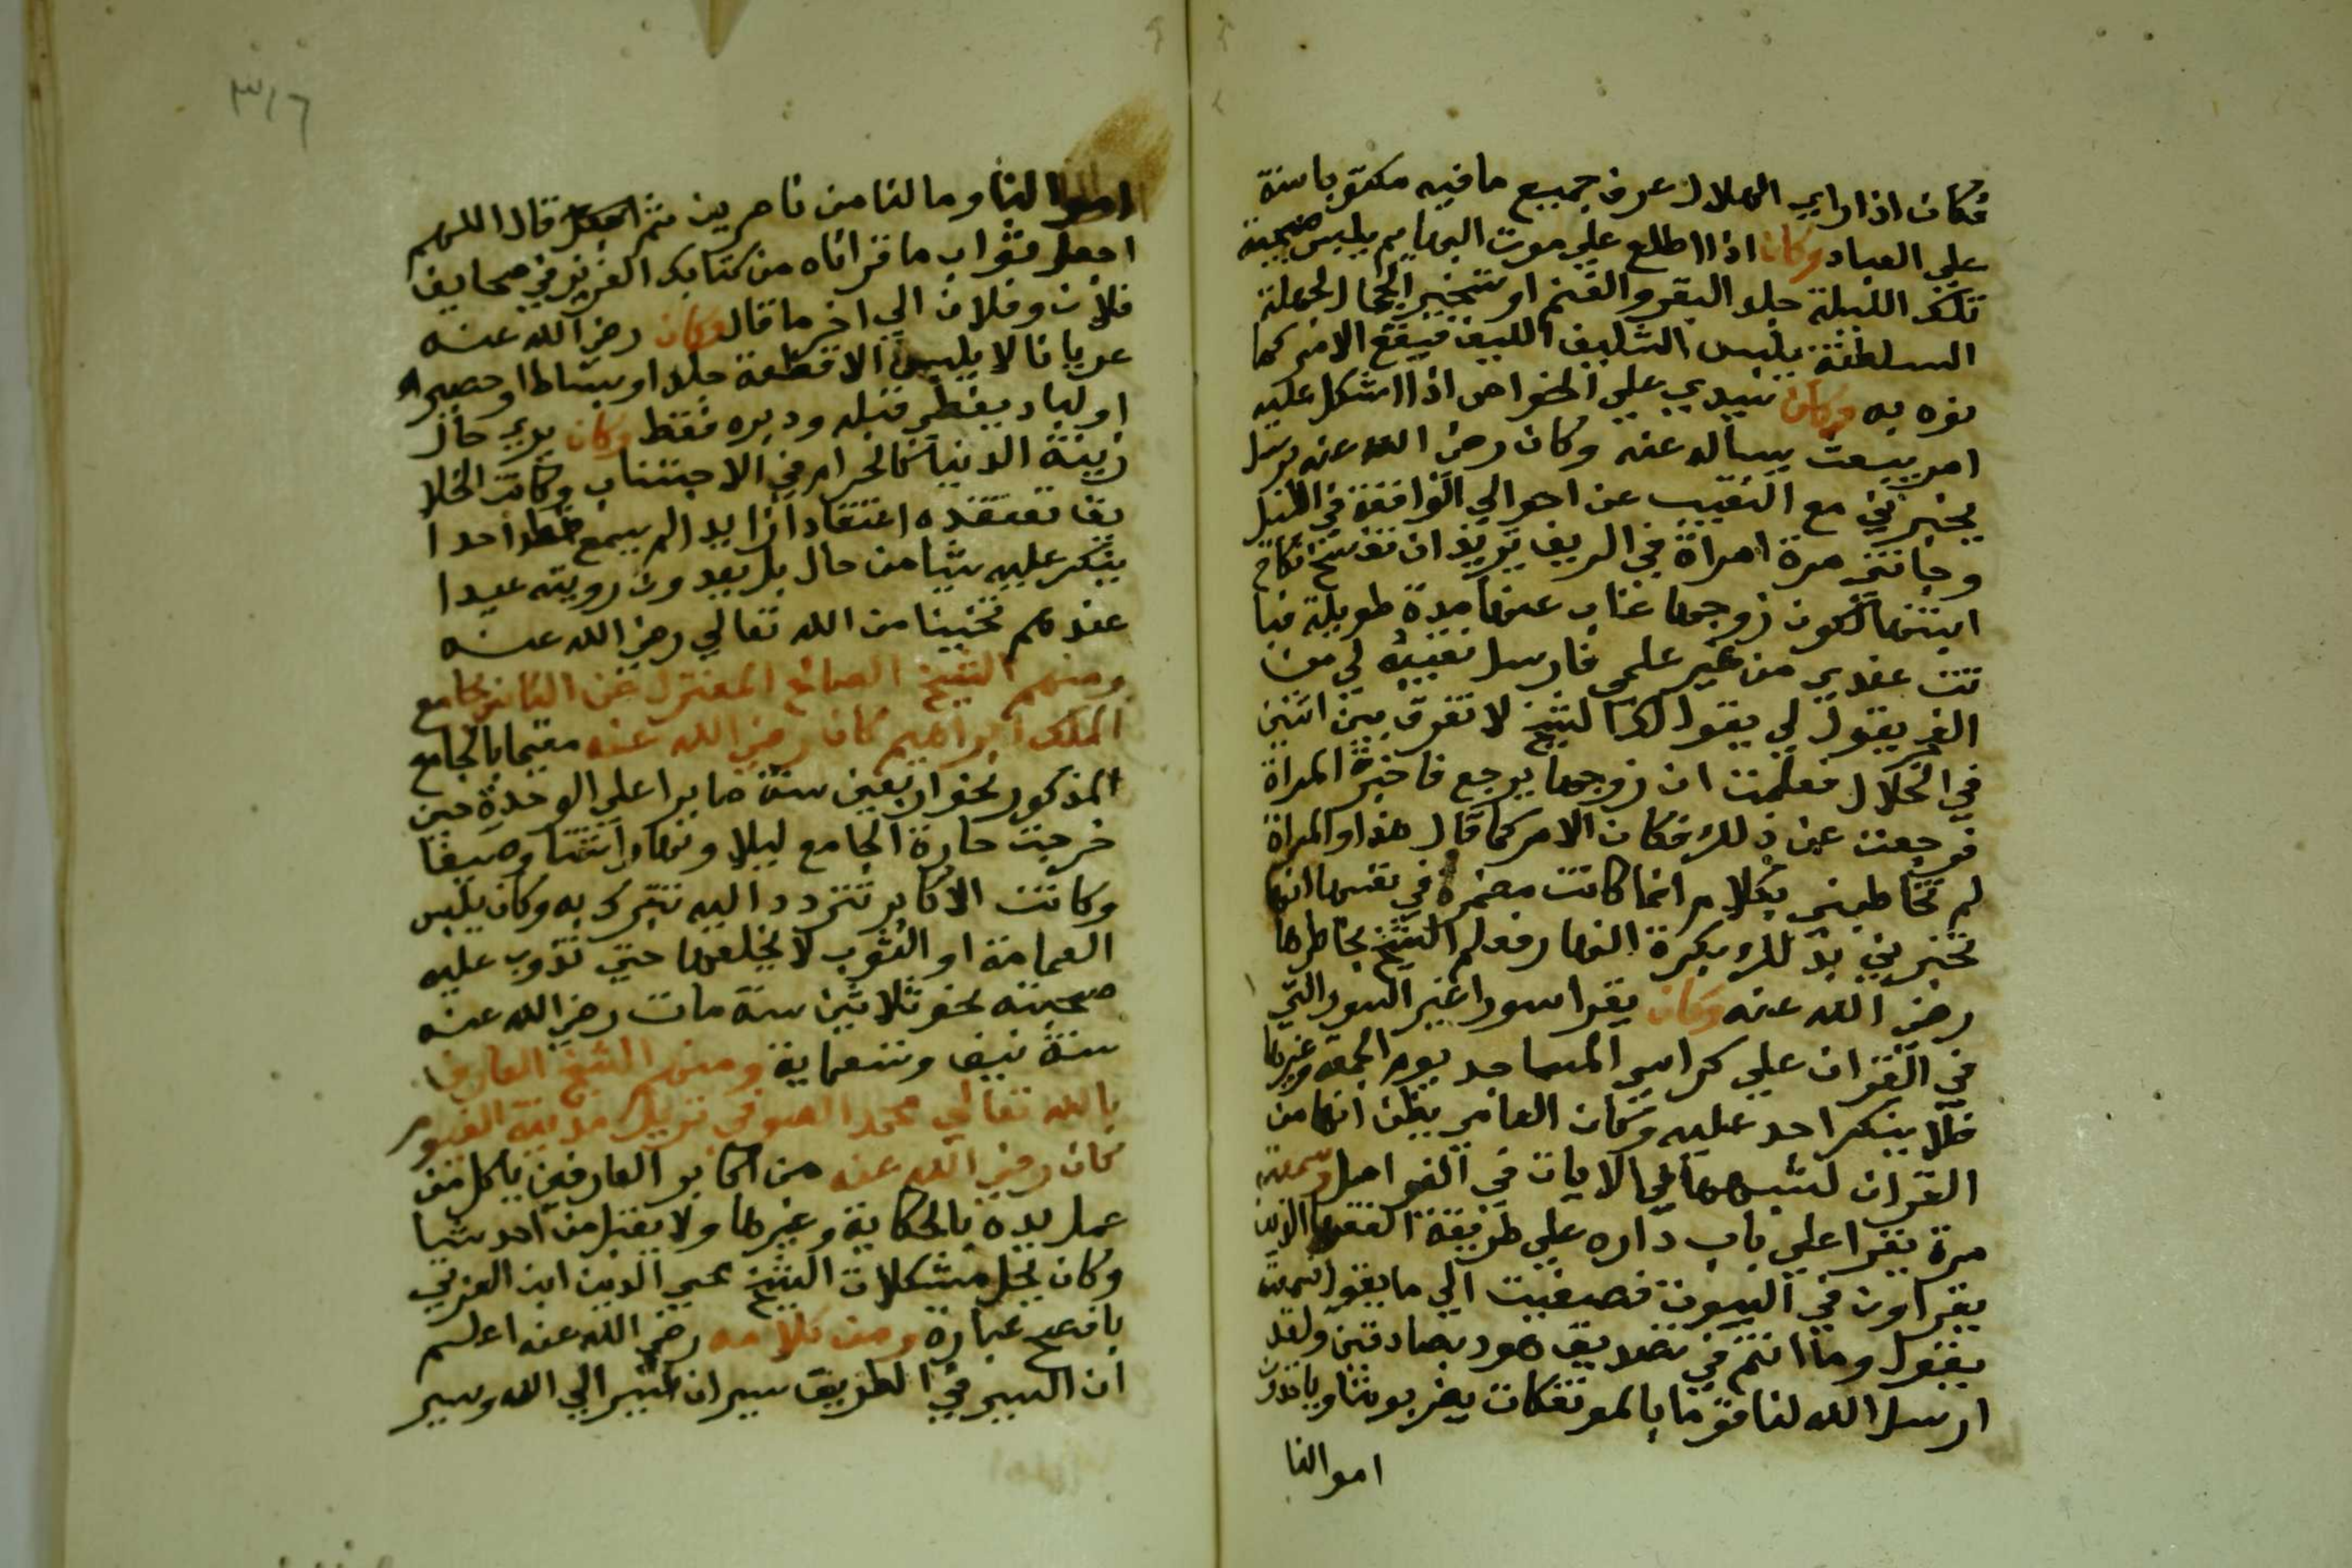 فكان اذا راي الهلال عرف جميع ما فيه مكتوبا سنة
علي العباد وكان اذا اطلع علي موت البهايم يلبس صبيحة
تلك الليلة جلد البقر والغنم او تسخير الجمال لجهة
السلطنة يلبس الشليف الليف فيقع الامر كما
نوه به وكان سيدي علي الخواص اذا اشكل عليه
امر يبعث يساله عنه وكان رضي الله عنه يرسل
يخبرني مع النقيب عن احوالي الواقعة في الليل
وجاتني مرة امراة في الريف تريد ان تفسخ نكاح
ابنتها لكون زوجها غاب عنها مدة طويلة فبا
تت عندي من غير علمي فارسل نقيبه لي من
الفجر يقول لي يقول لك الشيخ لا تفرق بين اثنين
في الحلال فعلمت ان زوجها يرجع فاخبرة المراة
فرجعت عن ذلك فكان الامر كما قال هذا والمراة
لم تخاطبني بكلام انما كانت مضمرة في نفسها انها
تخبرني بذلك بكرة النهار فعلم الشيخ بخاطرها
رضي الله عنه وكان يقرا سورا غير السور التي
في القران علي كراسي المساجد يوم الجمعة وغيرها
فلا ينكر احد عليه وكان العامي يظن انها من
القران لشبهها بالايات في الفواصل وسمعته
مرة يقرا علي باب داره علي طريقة الفقها الذين
يقراون في البيوت فصغيت الي ما يقول فسمعته
يقول وما انتم في تصديق هود بصادقين ولقد
ارسل الله لنا قوما بالمؤتفكات يضربوننا وياخذون
اموالنا
٣١٦
اموالنا وما لنا من ناصرين ثم قال اللهم
اجعل ثواب ما قراناه من كتابك العزيز في صحايف
فلان وفلان الي اخر ما قال وكان رضي الله عنه
عريانا لا يلبس الا قطعة جلد او بساط او حصير
او لباد يغطي قبله ودبره فقط وكان يري حال
زينة الدنيا كالحرام في الاجتناب وكانت الخلا
يق تعتقده اعتقادا زايدا لم يسمع قط احدا
ينكر عليه شيا من حاله بل يعدون رويته عيدا
عندهم تحنينا من الله تعالي رضي الله عنه
ومنهم الشيخ الصالح المعتزل عن الناس بجامع
الملك ابراهيم كان رضي الله عنه مقيما بالجامع
المذكور نحو اربعين سنة صابرا علي الوحدة حين
خربت حارة الجامع ليلا ونهارا شتا وصيفا
وكانت الاكابر تتردد اليه تتبرك به وكان يلبس
العمامة او الثوب لا يخلعها حتي تذوب عليه
صحبته نحو ثلاثين سنة مات رضي الله عنه
سنة نيف وتسعماية ومنهم الشيخ العارف
بالله تعالي محمد الصوفي نزيل مدينة الفيوم
كان رضي الله عنه من اكابر العارفين ياكل من
عمل يده بالحكاية وغيرها ولا يقبل من احد شيا
وكان يحل مشكلات الشيخ محي الدين ابن العربي
بافصح عبارة ومن كلامه رضي الله عنه اعلم
ان السير في الطريق سيران سير الي الله وسير